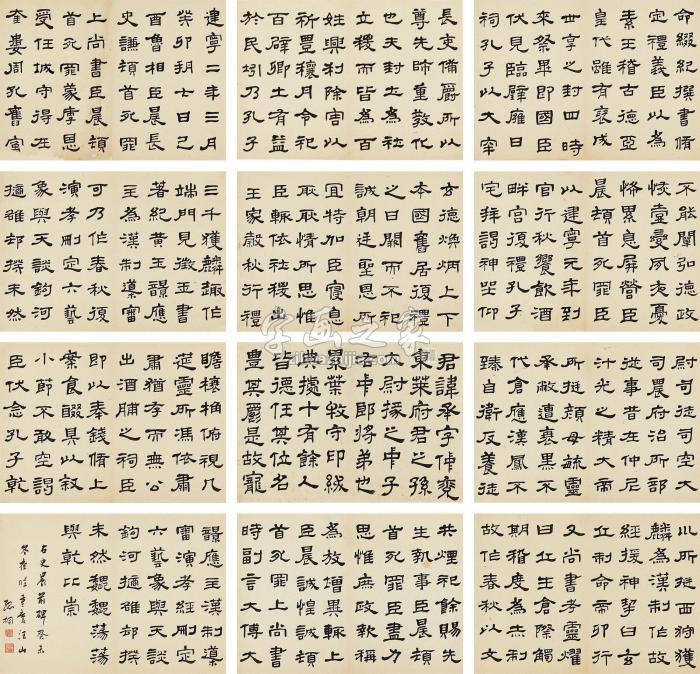 命綴紀撰書脩
定禮義臣以為
素王稽古德亞
皇代雖有褒成
世享之封四時
來祭畢即國臣
伏見臨辟雍日
祠孔子以大宰
長吏備爵所以
尊先師重敬化
也夫封土為社
立稷而皆為百
姓興利除害以
祈豐穰月令祀
百辟卿士有益
於民矧乃孔子
建寧二年三月
癸卯朔七日己
酉魯相臣晨長
史謙頓首死罪
上尚書臣晨頓
首死罪蒙厚恩
受任城守得在
奎婁周孔舊寓
不能闡弘德政
恢壹憂夙夜憂
怖累息屏營臣
晨頓首死罪臣
以建寧元年到
官行秋饗飲酒
畔宮復禮孔子
宅拜謁神坐仰
玄德煥炳上下
本國舊居復禮
之日闕而不祀
誠朝廷聖恩所
宜特加臣寢息
耿耿情所思惟
臣輒依社稷
王家穀秋行禮
三千獲麟趣作
端門見徵血書
著紀黃玉韻應
主為漢制道審
可乃作春秋復
演孝刪定六藝
象與天談鈞河
擿雒卻揆未然
尉司徒司空大
司農府治所部
從事昔在仲尼
汁光之精大帝
所挺顏母毓靈
承敝遭衰黑不
代倉應漢鳳不
臻自衛反養徒
君諱承字仲兗
東萊府君之孫
大尉掾之中子
右中郎將弟也
累葉牧守印紱
典據十有餘人
皆德任其位名
豐其爵是故寵
瞻榱桷俯視几
筵靈所馮依肅
肅猶存而無公
出酒脯之祠臣
即以奉錢脩上
案食醊具以叙
小節不敢空謁
臣伏念孔子乾
所挺西狩獲
麟為漢制作故
經援神挈曰玄
丘制命帝卯行
又尚書考靈耀
曰丘生倉際觸
期稽度為赤制
故作春秋
共煙祀餘賜先
生執事臣晨頓
首死罪臣盡力
思惟庶政報稱
為效增異輒上
臣晨誠惶誠恐
首死罪上尚書
時副言大傅大
韻應主漢制道
審演孝經刪定
六藝象與天談
鈞河擿雒卻揆
未然魏魏蕩蕩
與乾比崇
右史晨前碑癸未